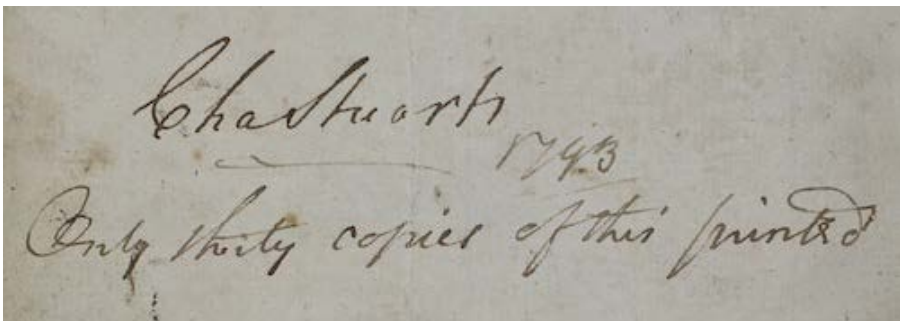 Cha Stuarts
1793
Only thirty copies of this printed